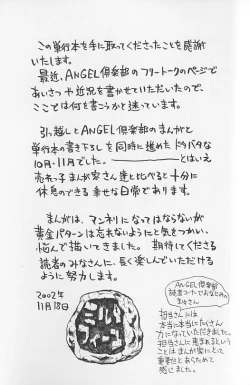 この単行本を手に取ってくださったことを感謝
いたします。
最近、ANGEL倶楽部のフリートークのページで
あいさつや近況を書かせていただいたので、
ここでは何を書こうかと迷っています。
引っ越しとANGEL倶楽部のまんがと
単行本の書き下ろしを同時に進めたドタバタな
10月・11月でした。――――とはいえ
売れっ子まんが家さん達と比べると十分に
休息のできる幸せな日常であります。
まんがは、マンネリになってはならないが
黄金パターンは忘れないようにと気をつかい、
悩んで描いてきました。期待してくださる
読者のみなさんに、長く楽しんでいただける
ように努力します。
2002年
11月18日
ミルフィーユ
ANGEL倶楽部
読者コーナーでおなじみの
担当さんには
本当に本当にたくさん
力になっていただきました。
担当さんに恵まれるという
ことはまんが家にとって
重要だとあらためて
感じました。